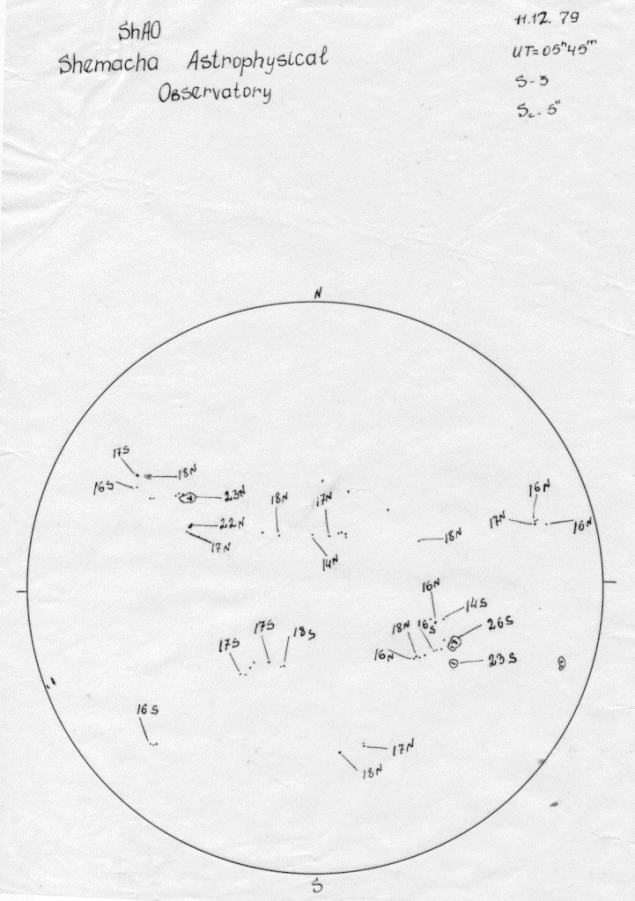 ShAO
Shemacha Astrophysical
Observatory
11.12. 79
UT=05ʰ45ᵐ
S-3
N
17S
18N
16S
23N
18N
17N
16N
17N
16N
22N
17N
14N
18N
16N
14S
18N
16S
26S
17S
17S
18S
16N
23S
16S
17N
18N
S